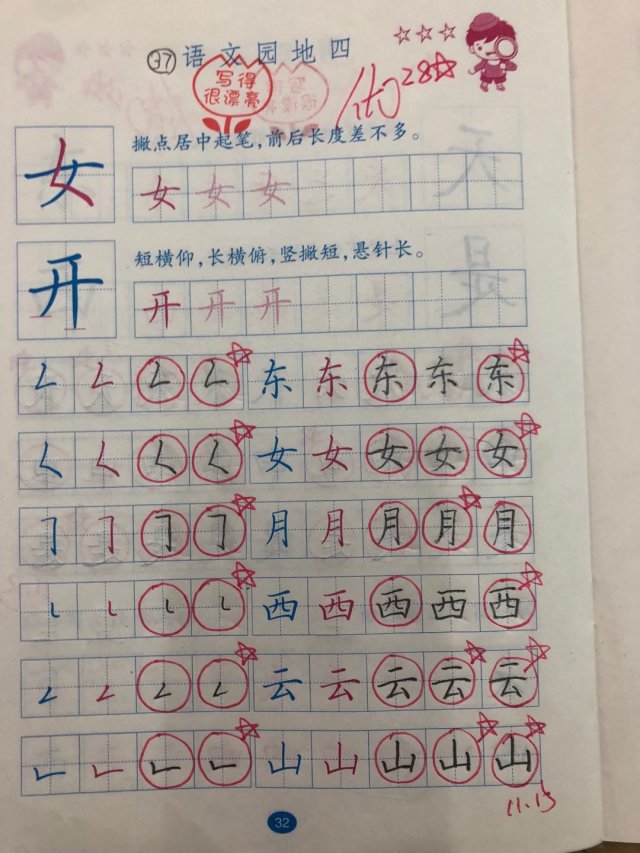 37 语文园地四
写得
很漂亮
优 28☆
女 撇点居中起笔,前后长度差不多。
女 女 女
开 短横仰,长横俯,竖撇短,悬针长。
开 开 开
𠃋 𠃋 𠃋 𠃋 东 东 东 东 东
𡿨 𡿨 𡿨 𡿨 女 女 女 女 女
㇆ ㇆ ㇆ ㇆ 月 月 月 月 月
㇄ ㇄ ㇄ ㇄ 西 西 西 西 西
𠃋 𠃋 𠃋 𠃋 云 云 云 云 云
㇗ ㇗ ㇗ ㇗ 山 山 山 山 山
11.15
32